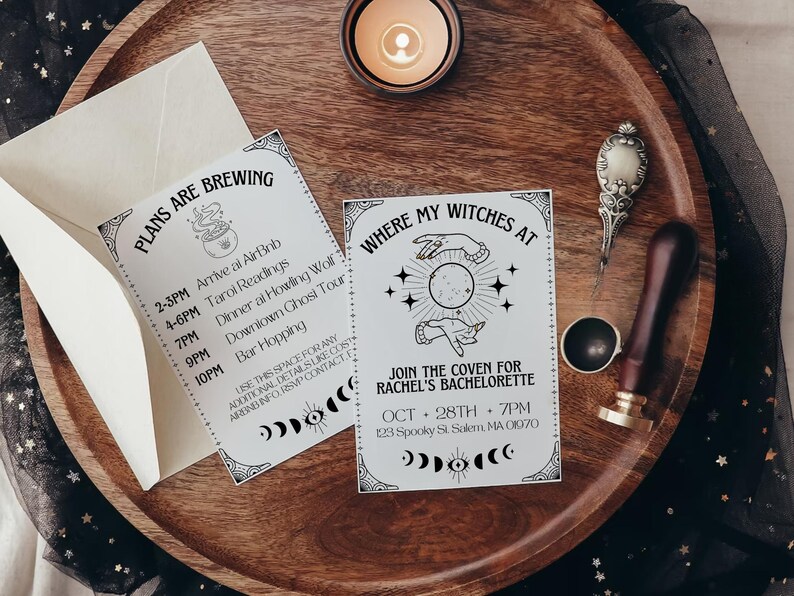 PLANS ARE BREWING
2-3PM Arrive at AirBnb
4-6PM Tarot Readings
7PM Dinner at Howling Wolf
9PM Downtown Ghost Tour
10PM Bar Hopping
USE THIS SPACE FOR ANY
ADDITIONAL DETAILS LIKE
AIRBNB INFO, RSVP CONTACT,
WHERE MY WITCHES AT
JOIN THE COVEN FOR
RACHEL'S BACHELORETTE
OCT + 28TH + 7PM
123 Spooky St. Salem, MA 01970